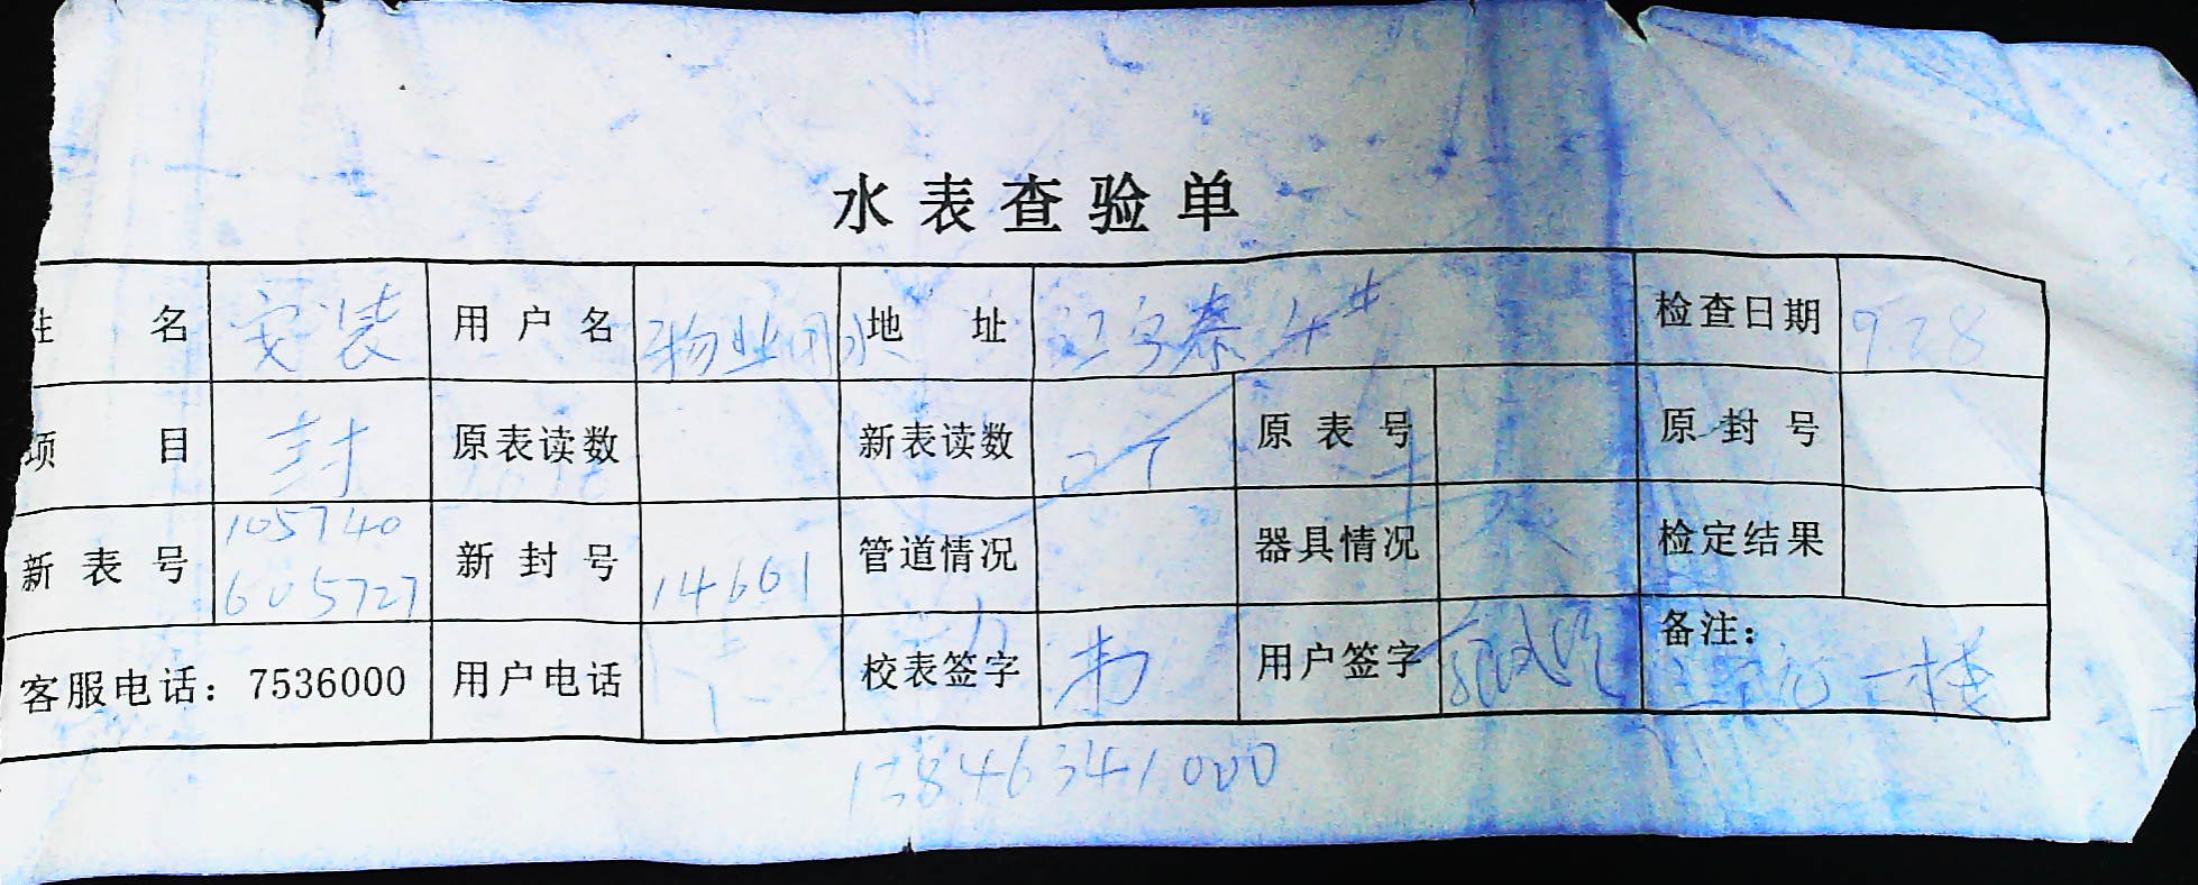 水表查验单
姓名 安装 用户名 物业用水 地址 4# 检查日期 9.28
项目 封 原表读数 新表读数 原表号 原封号
新表号 105740 605727 新封号 14661 管道情况 器具情况 检定结果
客服电话：7536000 用户电话 校表签字 用户签字 备注： 一楼
13846341000